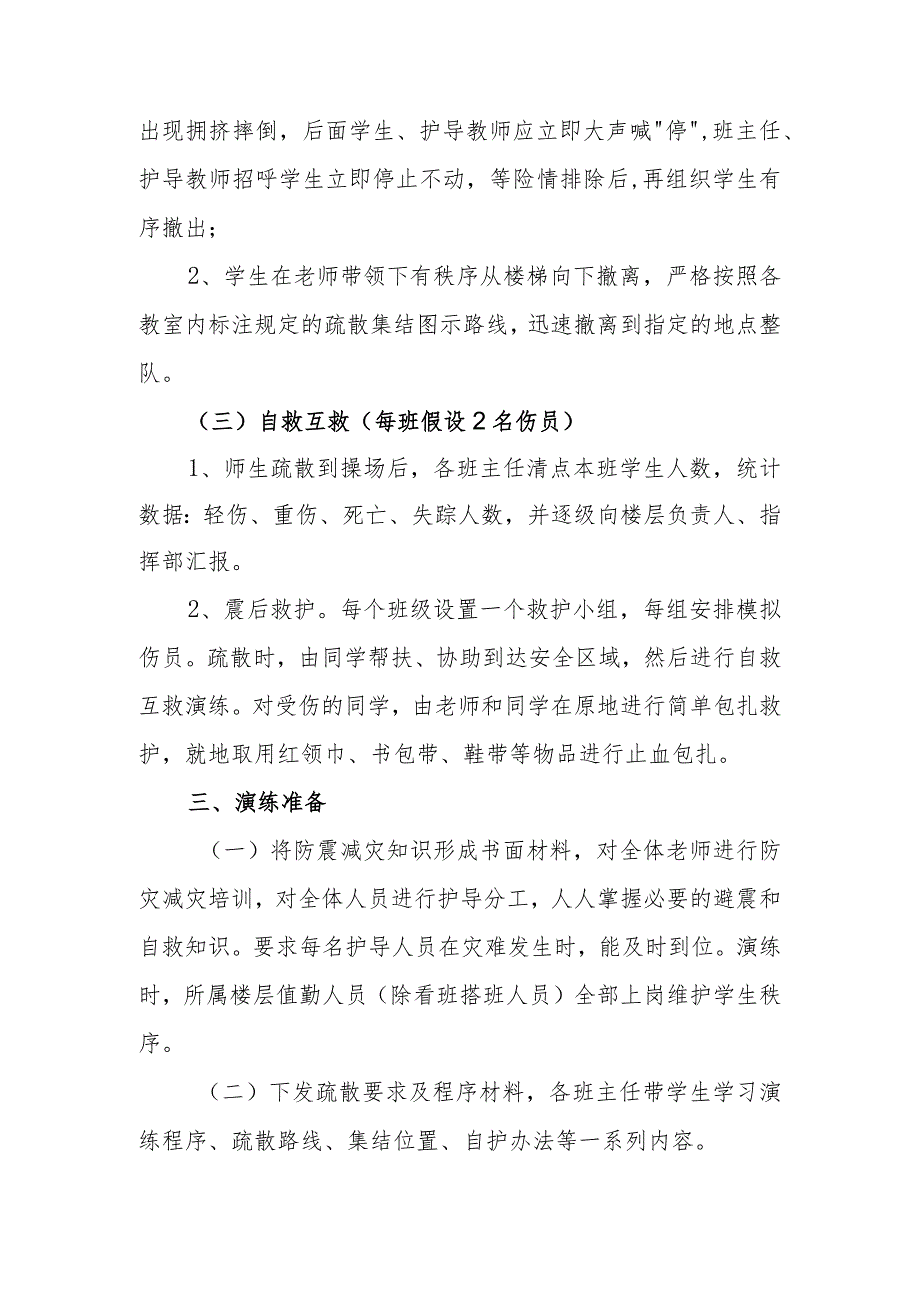 出现拥挤摔倒，后面学生、护导教师应立即大声喊"停",班主任、
护导教师招呼学生立即停止不动，等险情排除后,再组织学生有
序撤出；
2、学生在老师带领下有秩序从楼梯向下撤离，严格按照各
教室内标注规定的疏散集结图示路线，迅速撤离到指定的地点整
队。
（三）自救互救（每班假设2名伤员）
1、师生疏散到操场后，各班主任清点本班学生人数，统计
数据：轻伤、重伤、死亡、失踪人数，并逐级向楼层负责人、指
挥部汇报。
2、震后救护。每个班级设置一个救护小组，每组安排模拟
伤员。疏散时，由同学帮扶、协助到达安全区域，然后进行自救
互救演练。对受伤的同学，由老师和同学在原地进行简单包扎救
护，就地取用红领巾、书包带、鞋带等物品进行止血包扎。
三、演练准备
（一）将防震减灾知识形成书面材料，对全体老师进行防
灾减灾培训，对全体人员进行护导分工，人人掌握必要的避震和
自救知识。要求每名护导人员在灾难发生时，能及时到位。演练
时，所属楼层值勤人员（除看班搭班人员）全部上岗维护学生秩
序。
（二）下发疏散要求及程序材料，各班主任带学生学习演
练程序、疏散路线、集结位置、自护办法等一系列内容。